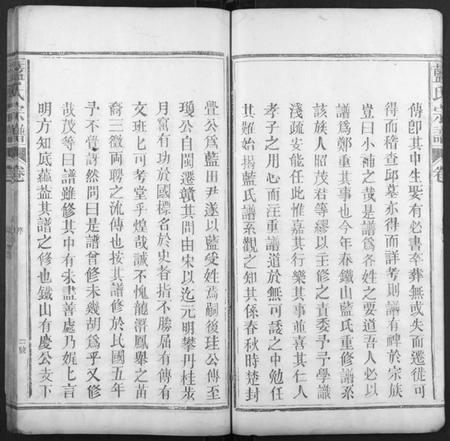 藍氏宗譜
卷
傳卽其中生娶有必書卒葬無或失而遷徙可
得而稽查邱墓亦得而詳考則譜有裨於宗族
豈曰小補之哉是譜爲各姓之要道吾人必以
譜爲鄭重其事也今年春鐵山藍氏重修譜系
該族人昭茂君等繆以主修之責委予予學識
淺疏安能任此惟嘉其行樂其事並喜其仁人
孝子之用心而注重譜道於無可諉之中勉任
其難始揚藍氏譜系觀之知其係春秋時楚封
亹公爲藍田尹遂以藍受姓爲嗣後珪公傳至
瓊公自閩遷贛其間由宋以迄元明攀丹桂茇
月窟有功於國標名於史者指不勝屈有傳有
文班匕可考堂乎煌哉誠不愧龍潛鳳舉之苗
裔三徵兩聘之流傳也按其譜修於民國五年
予不覺訝然問曰是譜曾修未幾胡爲乎又修
哉茂等曰譜雖修其中有未盡善處乃娓匕言
明方知底蘊葢其譜之修也鐵山有慶公支下
藍氏宗譜
卷
序